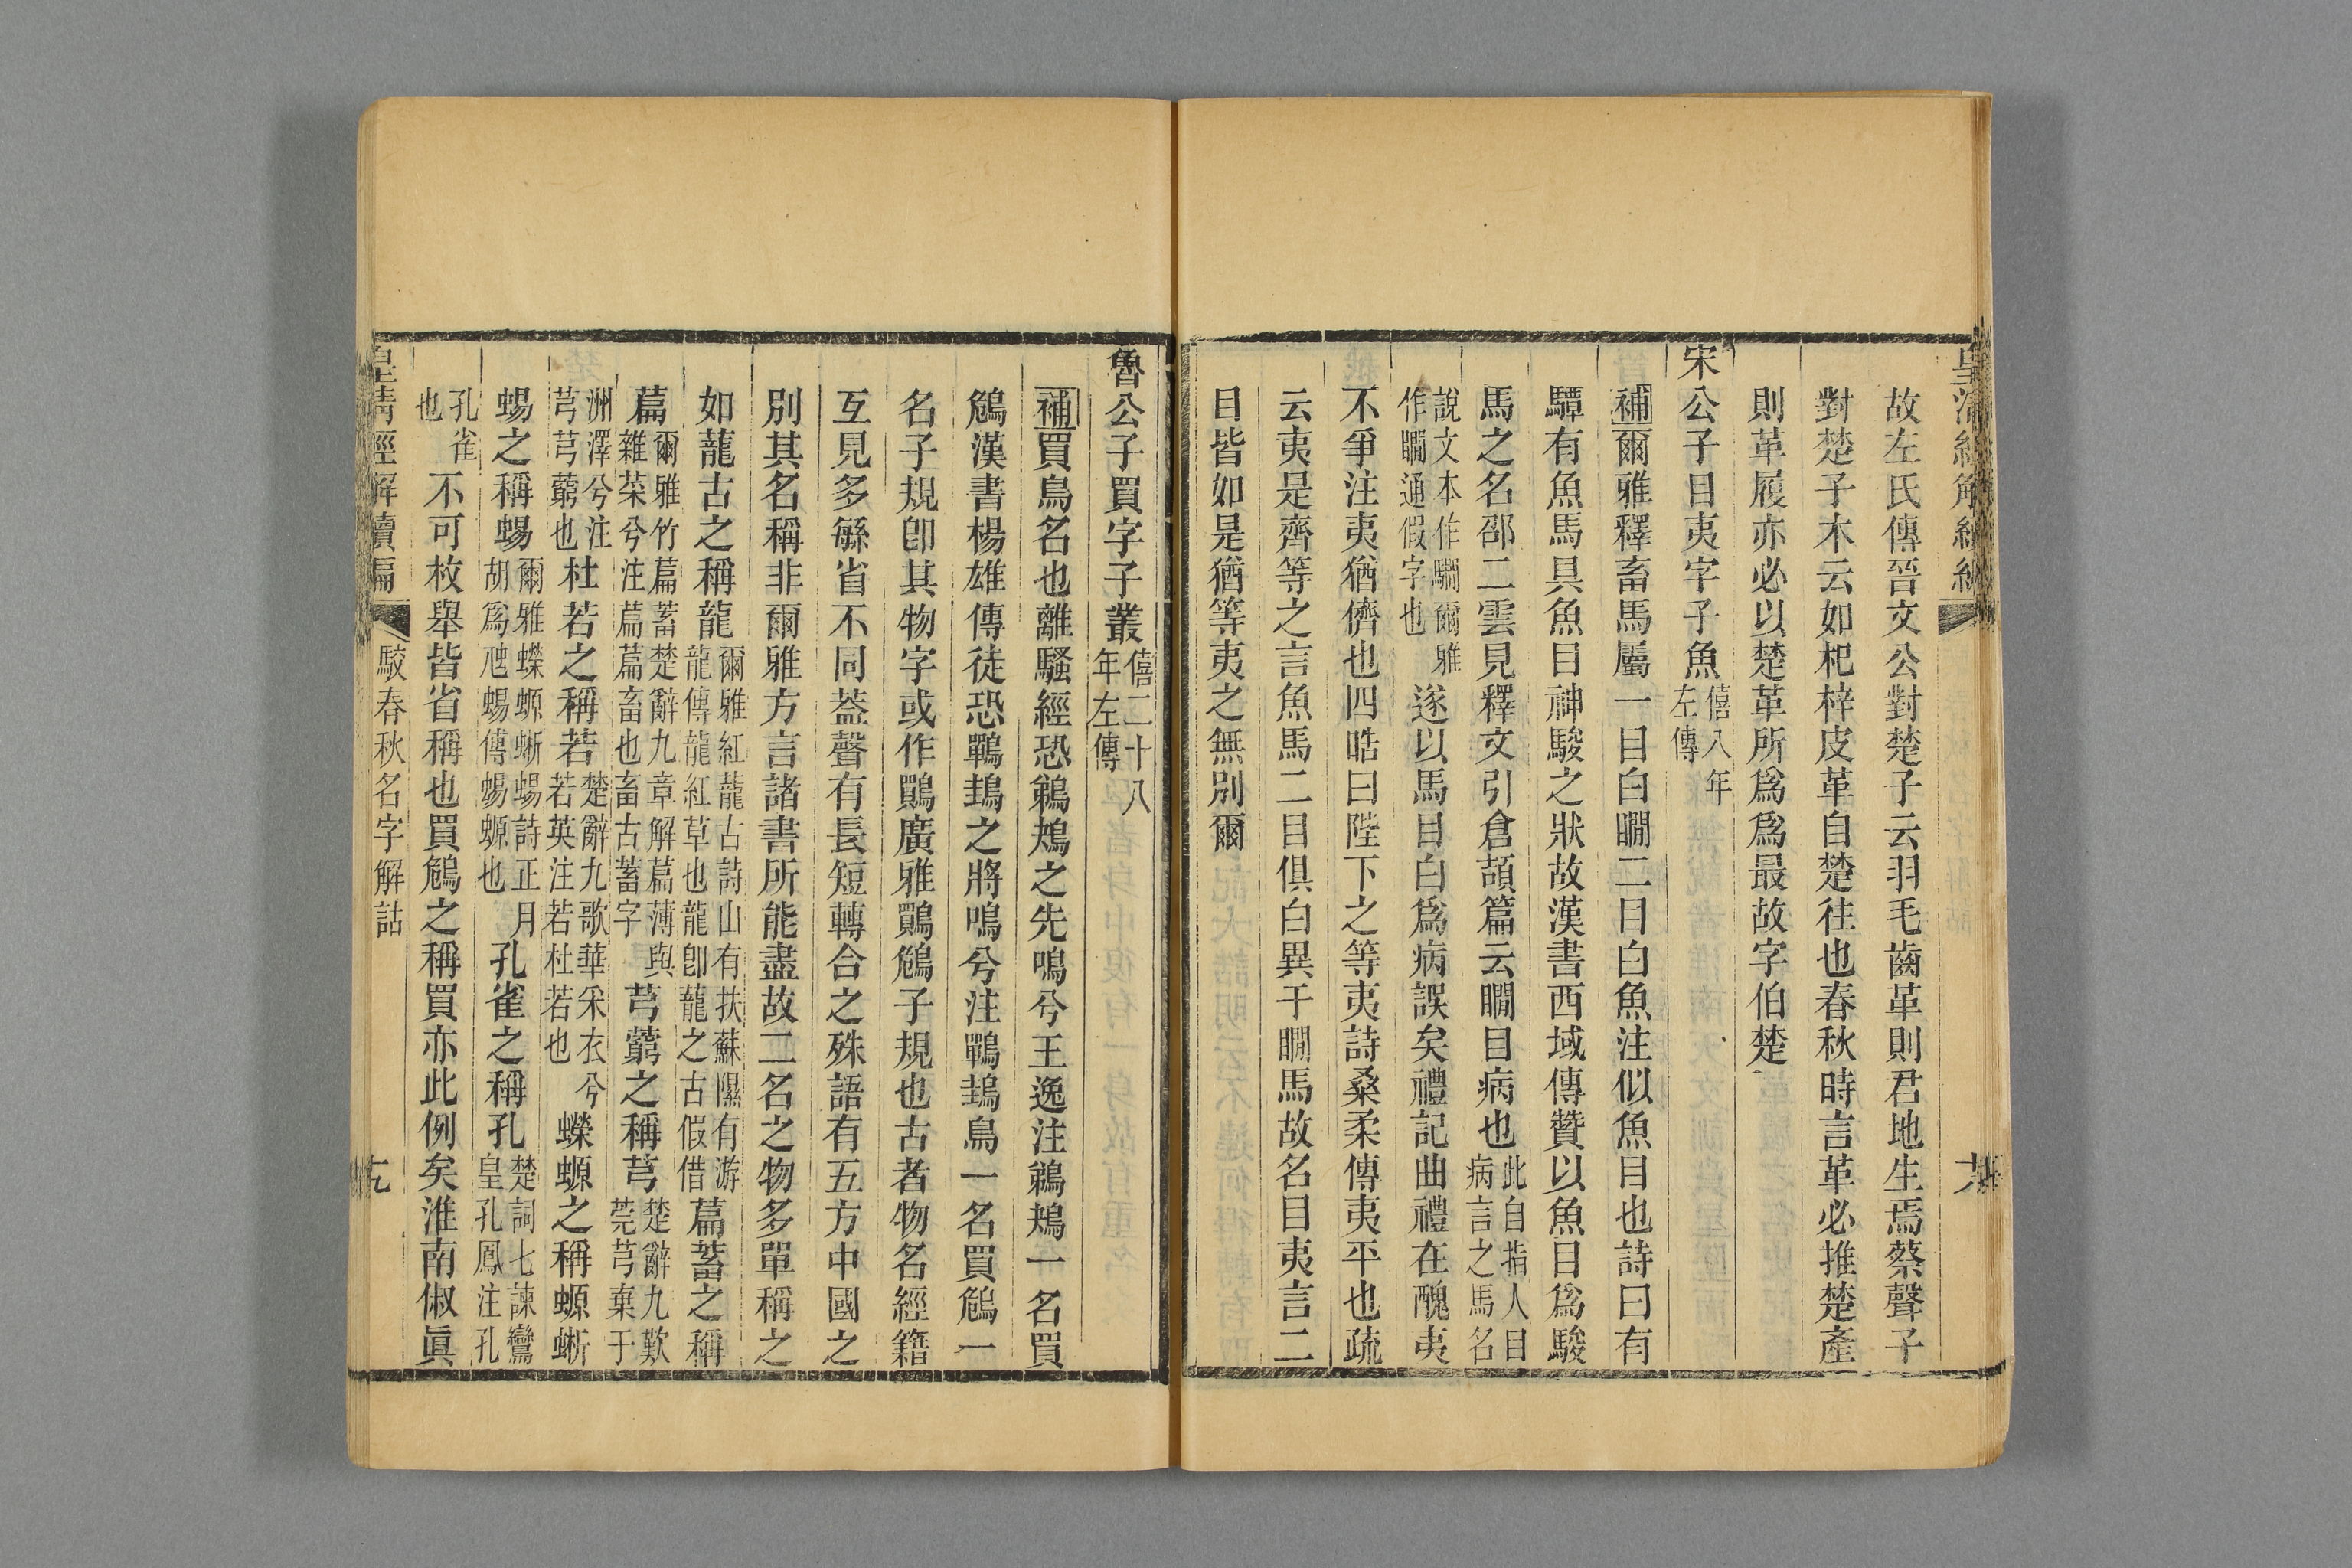 皇清經解續編
故左氏傳晉文公對楚子云羽毛齒革則君地生焉蔡聲子
對楚子木云如杞梓皮革自楚往也春秋時言革必推楚產
則革履亦必以楚革所爲爲最故字伯楚
宋公子目夷字子魚僖八年左傳
補爾雅釋畜馬屬一目白瞯二目白魚注似魚目也詩曰有
驔有魚馬具魚目神駿之狀故漢書西域傳贊以魚目爲駿
馬之名邵二雲見釋文引倉頡篇云瞯目病也此自指人目病言之馬名
說文本作驧爾雅作瞯通假字也遂以馬目白爲病誤矣禮記曲禮在醜夷
不爭注夷猶儕也四皓曰陛下之等夷詩桑柔傳夷平也疏
云夷是齊等之言魚馬二目俱白異于瞯馬故名目夷言二
目皆如是猶等夷之無別爾
魯公子買字子叢僖二十八年左傳
補買鳥名也離騷經恐鵜鴂之先鳴兮王逸注鵜鴂一名買
鵤漢書楊雄傳徒恐鷤䳏之將鳴兮注鷤䳏鳥一名買鵤一
名子規卽其物字或作鷶廣雅鷶鵤子規也古者物名經籍
互見多緐省不同葢聲有長短轉合之殊語有五方中國之
別其名稱非爾雅方言諸書所能盡故二名之物多單稱之
如蘢古之稱龍爾雅紅蘢古詩山有扶蘇隰有游龍傳龍紅草也龍卽蘢之古假借萹蓄之稱
萹爾雅竹萹蓄楚辭九章解萹薄與雜菜兮注萹萹畜也畜古蓄字芎藭之稱芎楚辭九歎莞芎棄于
洲澤兮注芎芎藭也杜若之稱若楚辭九歌華采衣兮若英注若杜若也蠑螈之稱螈蜥
蜴之稱蜴爾雅蠑螈蜥蜴詩正月胡爲虺蜴傳蜴螈也孔雀之稱孔楚詞七諫鸞皇孔鳳注孔
孔雀也不可枚舉皆省稱也買鵤之稱買亦此例矣淮南俶眞
皇清經解續編
駁春秋名字解詁
九